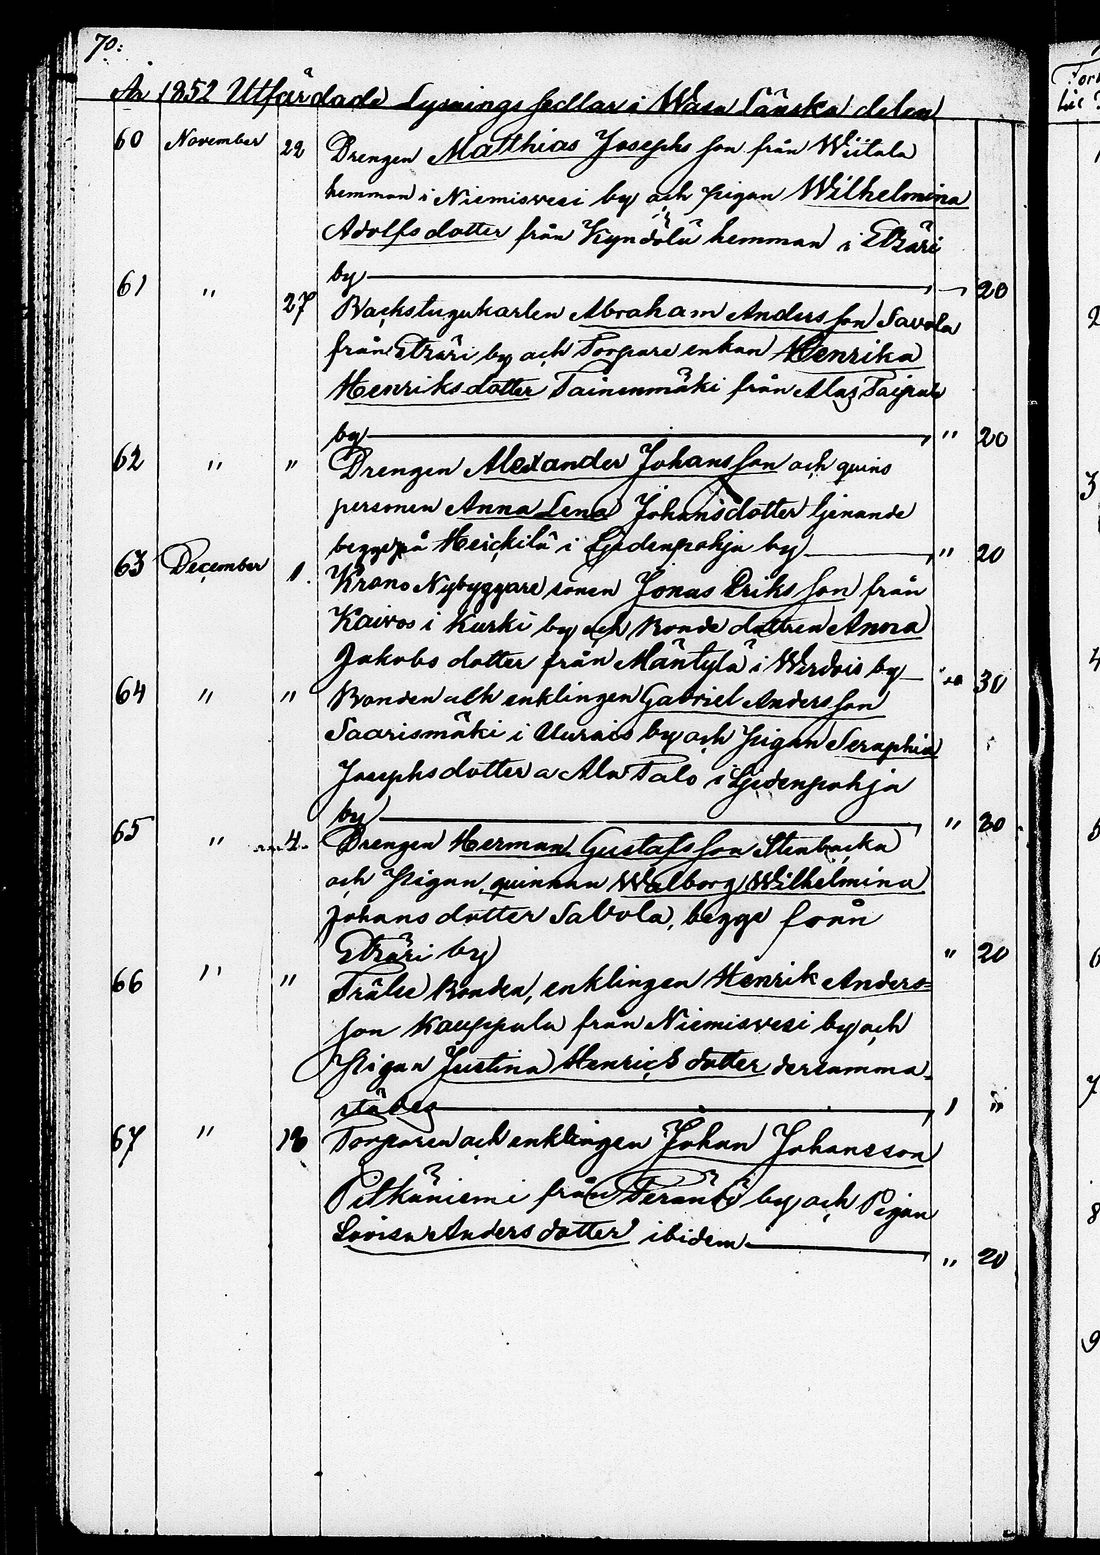 70:
År 1852 Utfärdade Lysnings sedlar i Wasa Länska delen
60 November 22 Drengen Matthias Josephs son från Wiitala
hemman i Niemisvesi by och pigan Wilhelmina
Adolfs dotter från Kyndölä hemman i Etzäri
by 20
61 " 27 Backstugukarlen Abraham Anders son Savola
från Etzäri by och Torpare enkan Henrika
Henriks dotter Tainenmäki från Alas Taipale
by " 20
62 " " Drengen Alexander Johans son och quins
personen Anna Lena Johans dotter tjenande
begge på Heickilä i Sjedenpohja by " 20
63 December 1. Krono Nybyggare sonen Jonas Eriks son från
Kaivos i Kurki by och Bonde dottren Anna
Jakobs dotter från Mäntylä i Werdois by 30
64 " " Bonden och enklingen Gabriel Anders son
Saarismäki i Uurais by och pigan Seraphia
Josephs dotter a Ala Talo i Sjedenpohja
by " 20
65 " 4. Drengen Herman Gustafs son Stenbacka
och Pigan quinnan Walborg Wilhelmina
Johans dotter Savola, begge från
Etzäri by " 20
66 " " Frälse Bonden, enklingen Henrik Anders=
son Kauppula från Niemisvesi by och
Pigan Justina Henricks dotter dersamma-
städes 1 "
67 " 18 Torparen och enklingen Johan Johansson
Pitkäniemi från Peränä by och Pigan
Lovisa Anders dotter ibidem " 20